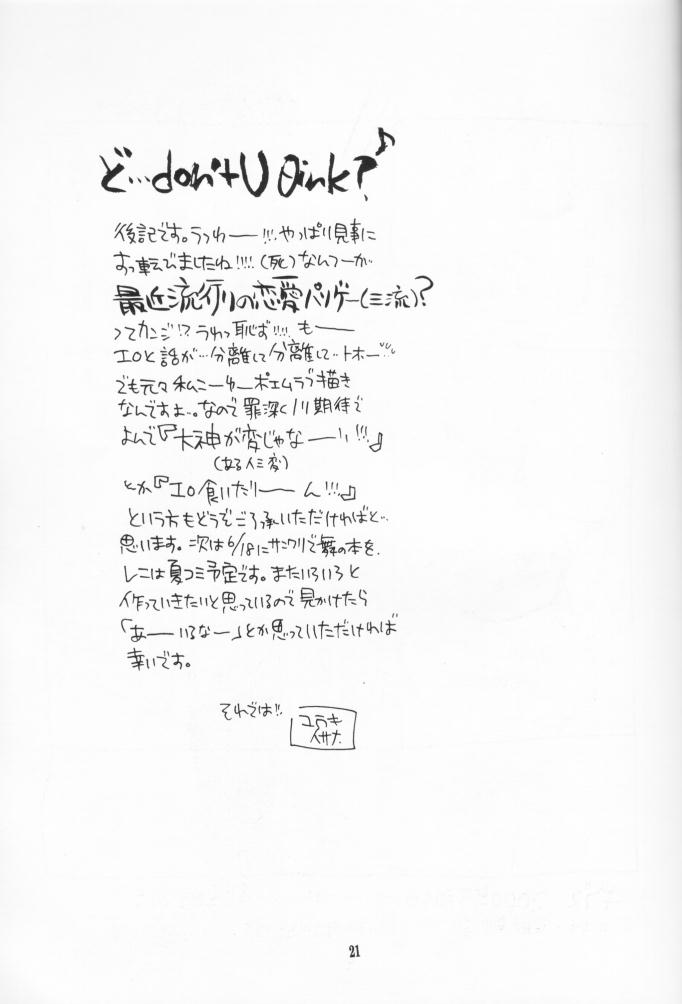 ど…don't U θink?♪
後記です。うっわーー!!!やっぱり見事に
すっ転でましたね!!!!(死)なんつーか
最近流行りの恋愛パソゲー(三流)?
ってカンジ!?うわっ恥ず!!!!もーー
エロと話が…分離して分離して…トホー
でも元々私こーゆーポエムラブ描き
なんですよ…。なので罪深く期待で
よんで『大神が変じゃなーーい!!!』
(ある人ミ変)
とか『エロ食いだりーーん!!!』
という方もどうぞご了承いただければと…
思います。次は6/18にサンクリで舞の本を、
レニは夏コミ予定です。またいろいろと
作っていきたいと思っているので見かけたら
「あーーいるなー」とか思っていただければ
幸いです。
それでは!!
ユラキ
イサナ
21